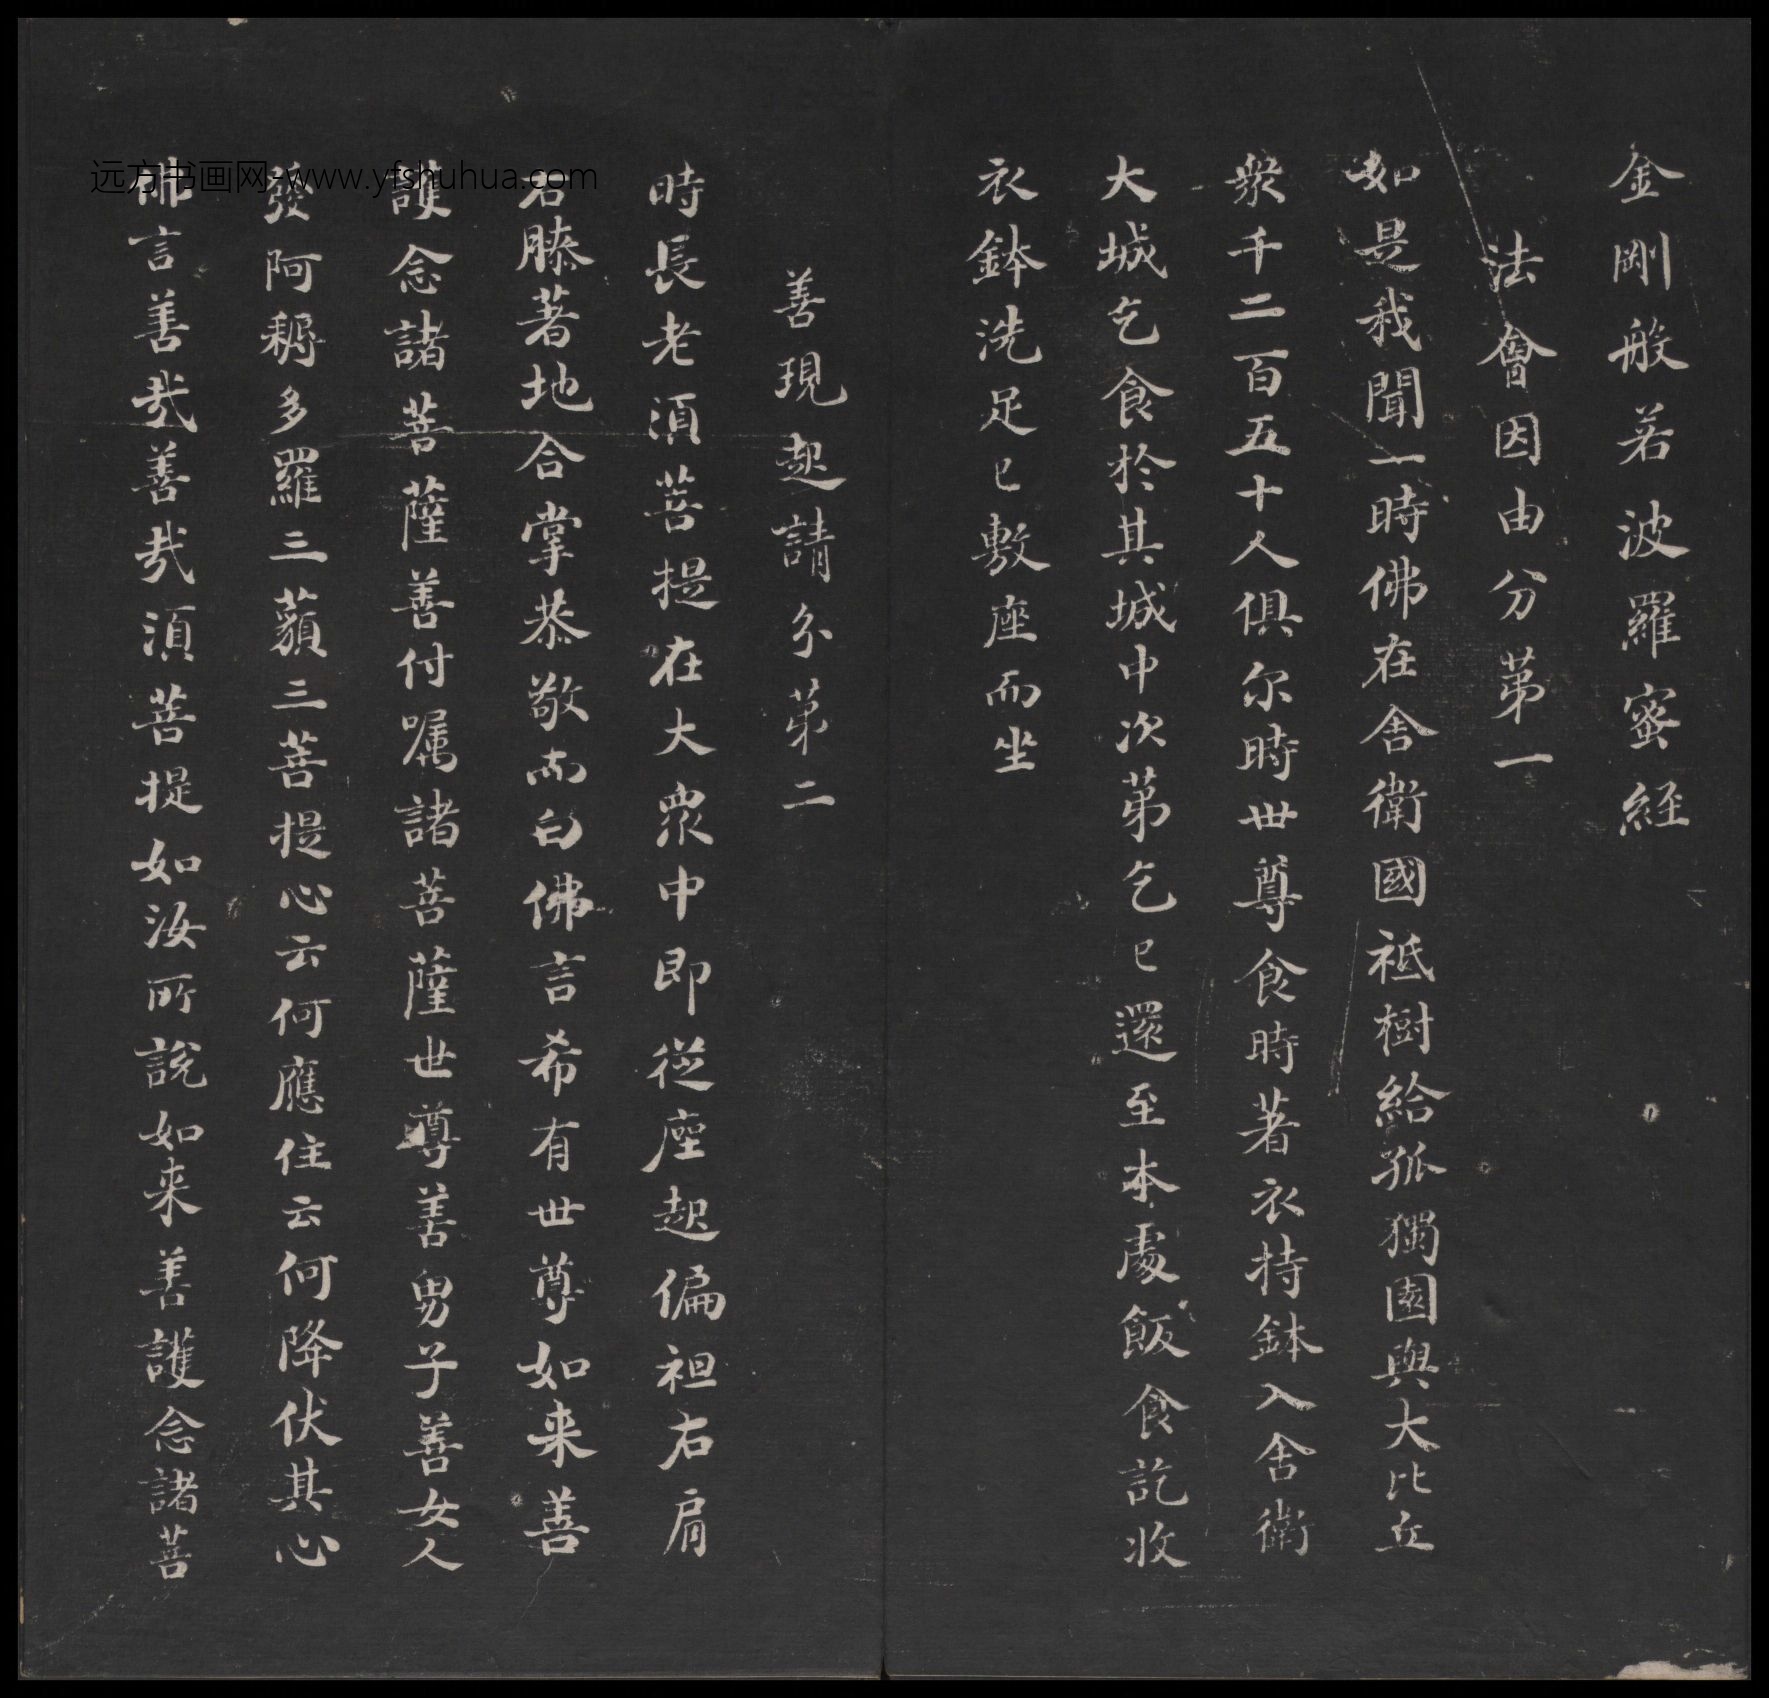 金剛般若波羅蜜経
法會因由分第一
如是我聞一時佛在舎衛國祇樹給孤獨園與大比丘
衆千二百五十人俱尔時世尊食時著衣持鉢入舎衛
大城乞食於其城中次第乞已還至本處飯食訖收
衣鉢洗足已敷座而坐
善現起請分第二
時長老湏菩提在大衆中即從座起偏袒右肩
右膝著地合掌恭敬而白佛言希有世尊如来善
護念諸菩薩善付嘱諸菩薩世尊善男子善女人
發阿耨多羅三藐三菩提心云何應住云何降伏其心
佛言善哉善哉湏菩提如汝所說如来善護念諸菩
远方书画网-www.yfshuhua.com